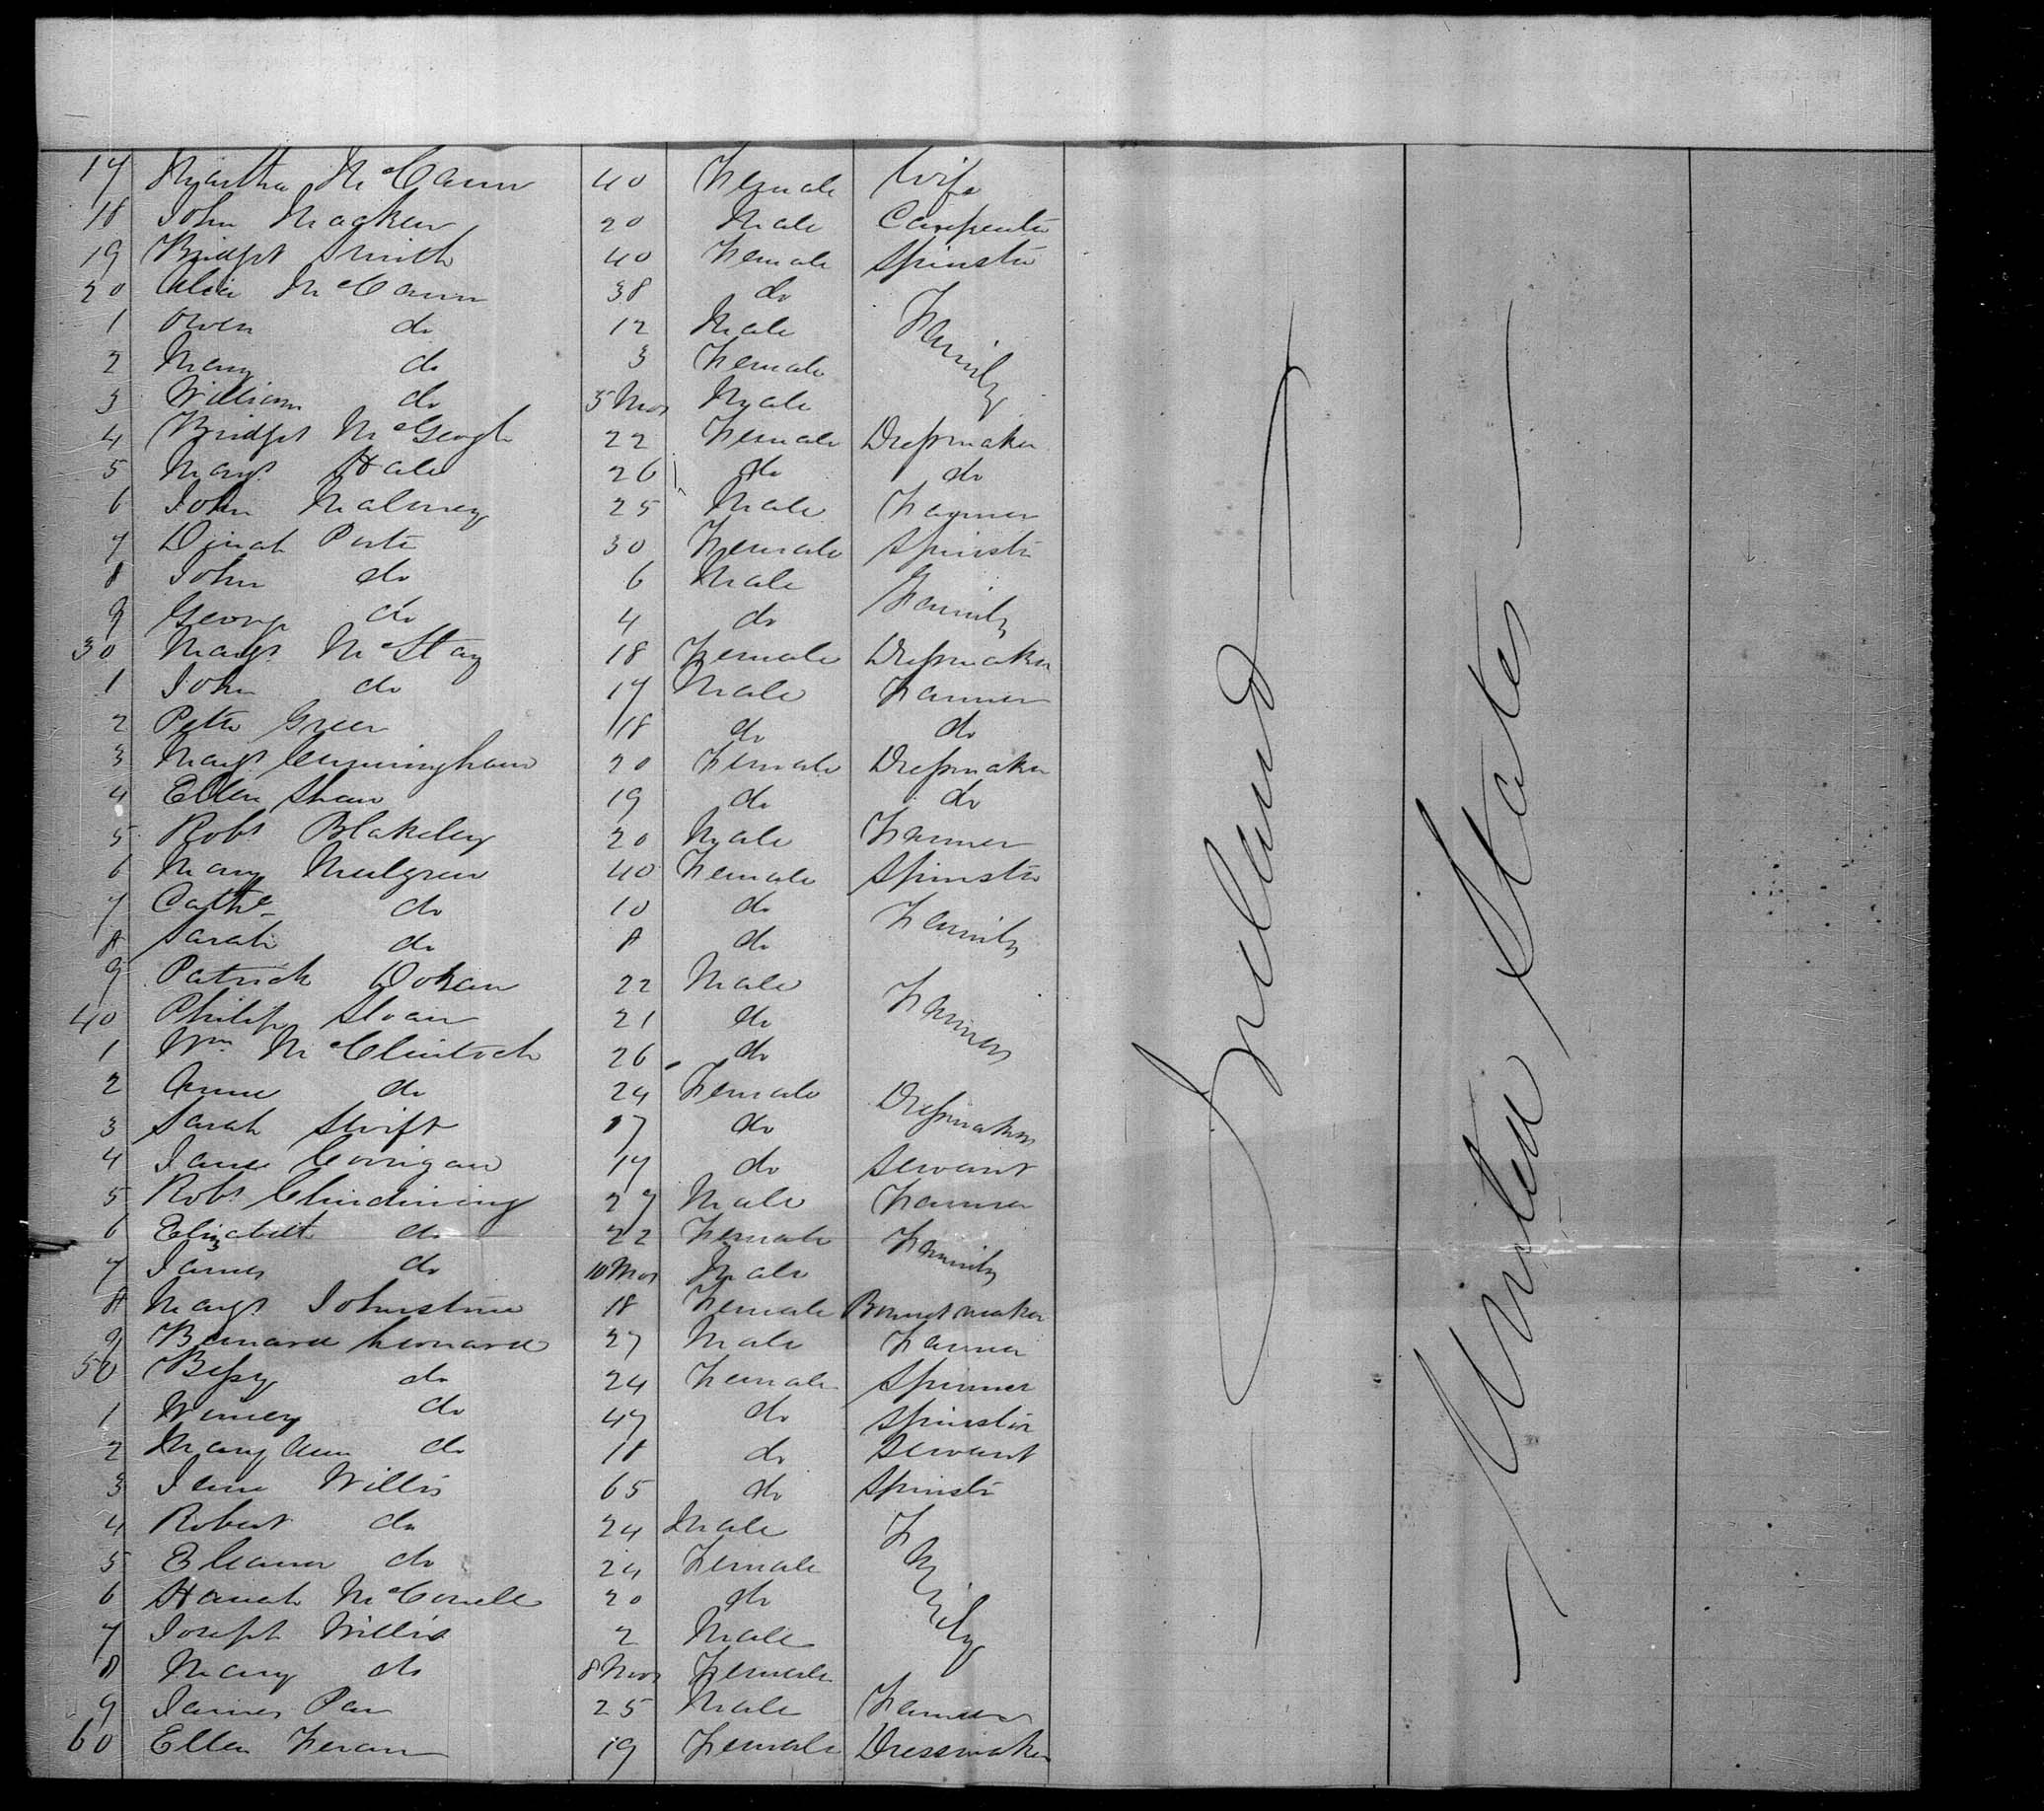 17 Martha McCann 40 Female Wife
18 John Macken 20 Male Carpenter
19 Bridget Smith 40 Female Spinster
20 Alice McCann 38 do
1 Owen do 12 Male Family
2 Mary do 3 Female
3 William do 5 Mos Male
4 Bridget McGeogh 22 Female Dressmaker
5 Margt Hale 26 do do
6 John Malmey 25 Male Farmer
7 Dinah Porter 30 Female Spinster
8 John do 6 Male Family
9 George do 4 do
30 Margt McStay 18 Female Dressmaker
1 John do 17 Male Farmer
2 Peter Green 18 do do
3 Margt Cunningham 20 Female Dressmaker
4 Ellen Shaw 19 do do
5 Robt Blakeley 20 Male Farmer
6 Mary Mulgrew 40 Female Spinster
7 Cathe do 10 do Family
8 Sarah do 8 do
9 Patrick Dohan 22 Male Farmers
40 Philip Sloan 21 do
1 Wm McClintock 26 do
2 Anne do 24 Female Dressmakers
3 Sarah Swift 17 do
4 Jane Corrigan 17 do Servant
5 Robt Clindining 27 Male Farmer
6 Elizabeth do 22 Female Family
7 James do 10 Mos Male
8 Margt Johnstone 18 Female Bonnet maker
9 Bernard Leonard 27 Male Farmer
50 Bessy do 24 Female Spinner
1 Winney do 47 do Spinster
2 Mary Ann do 18 do Servant
3 Jane Willis 65 do Spinster
4 Robert do 24 Male Family
5 Eleanor do 24 Female
6 Hanah McConell 20 do
7 Joseph Willis 2 Male
8 Mary do 8 Mos Female
9 James Parr 25 Male Farmer
60 Ellen Feran 19 Female Dressmaker
Ireland
United States